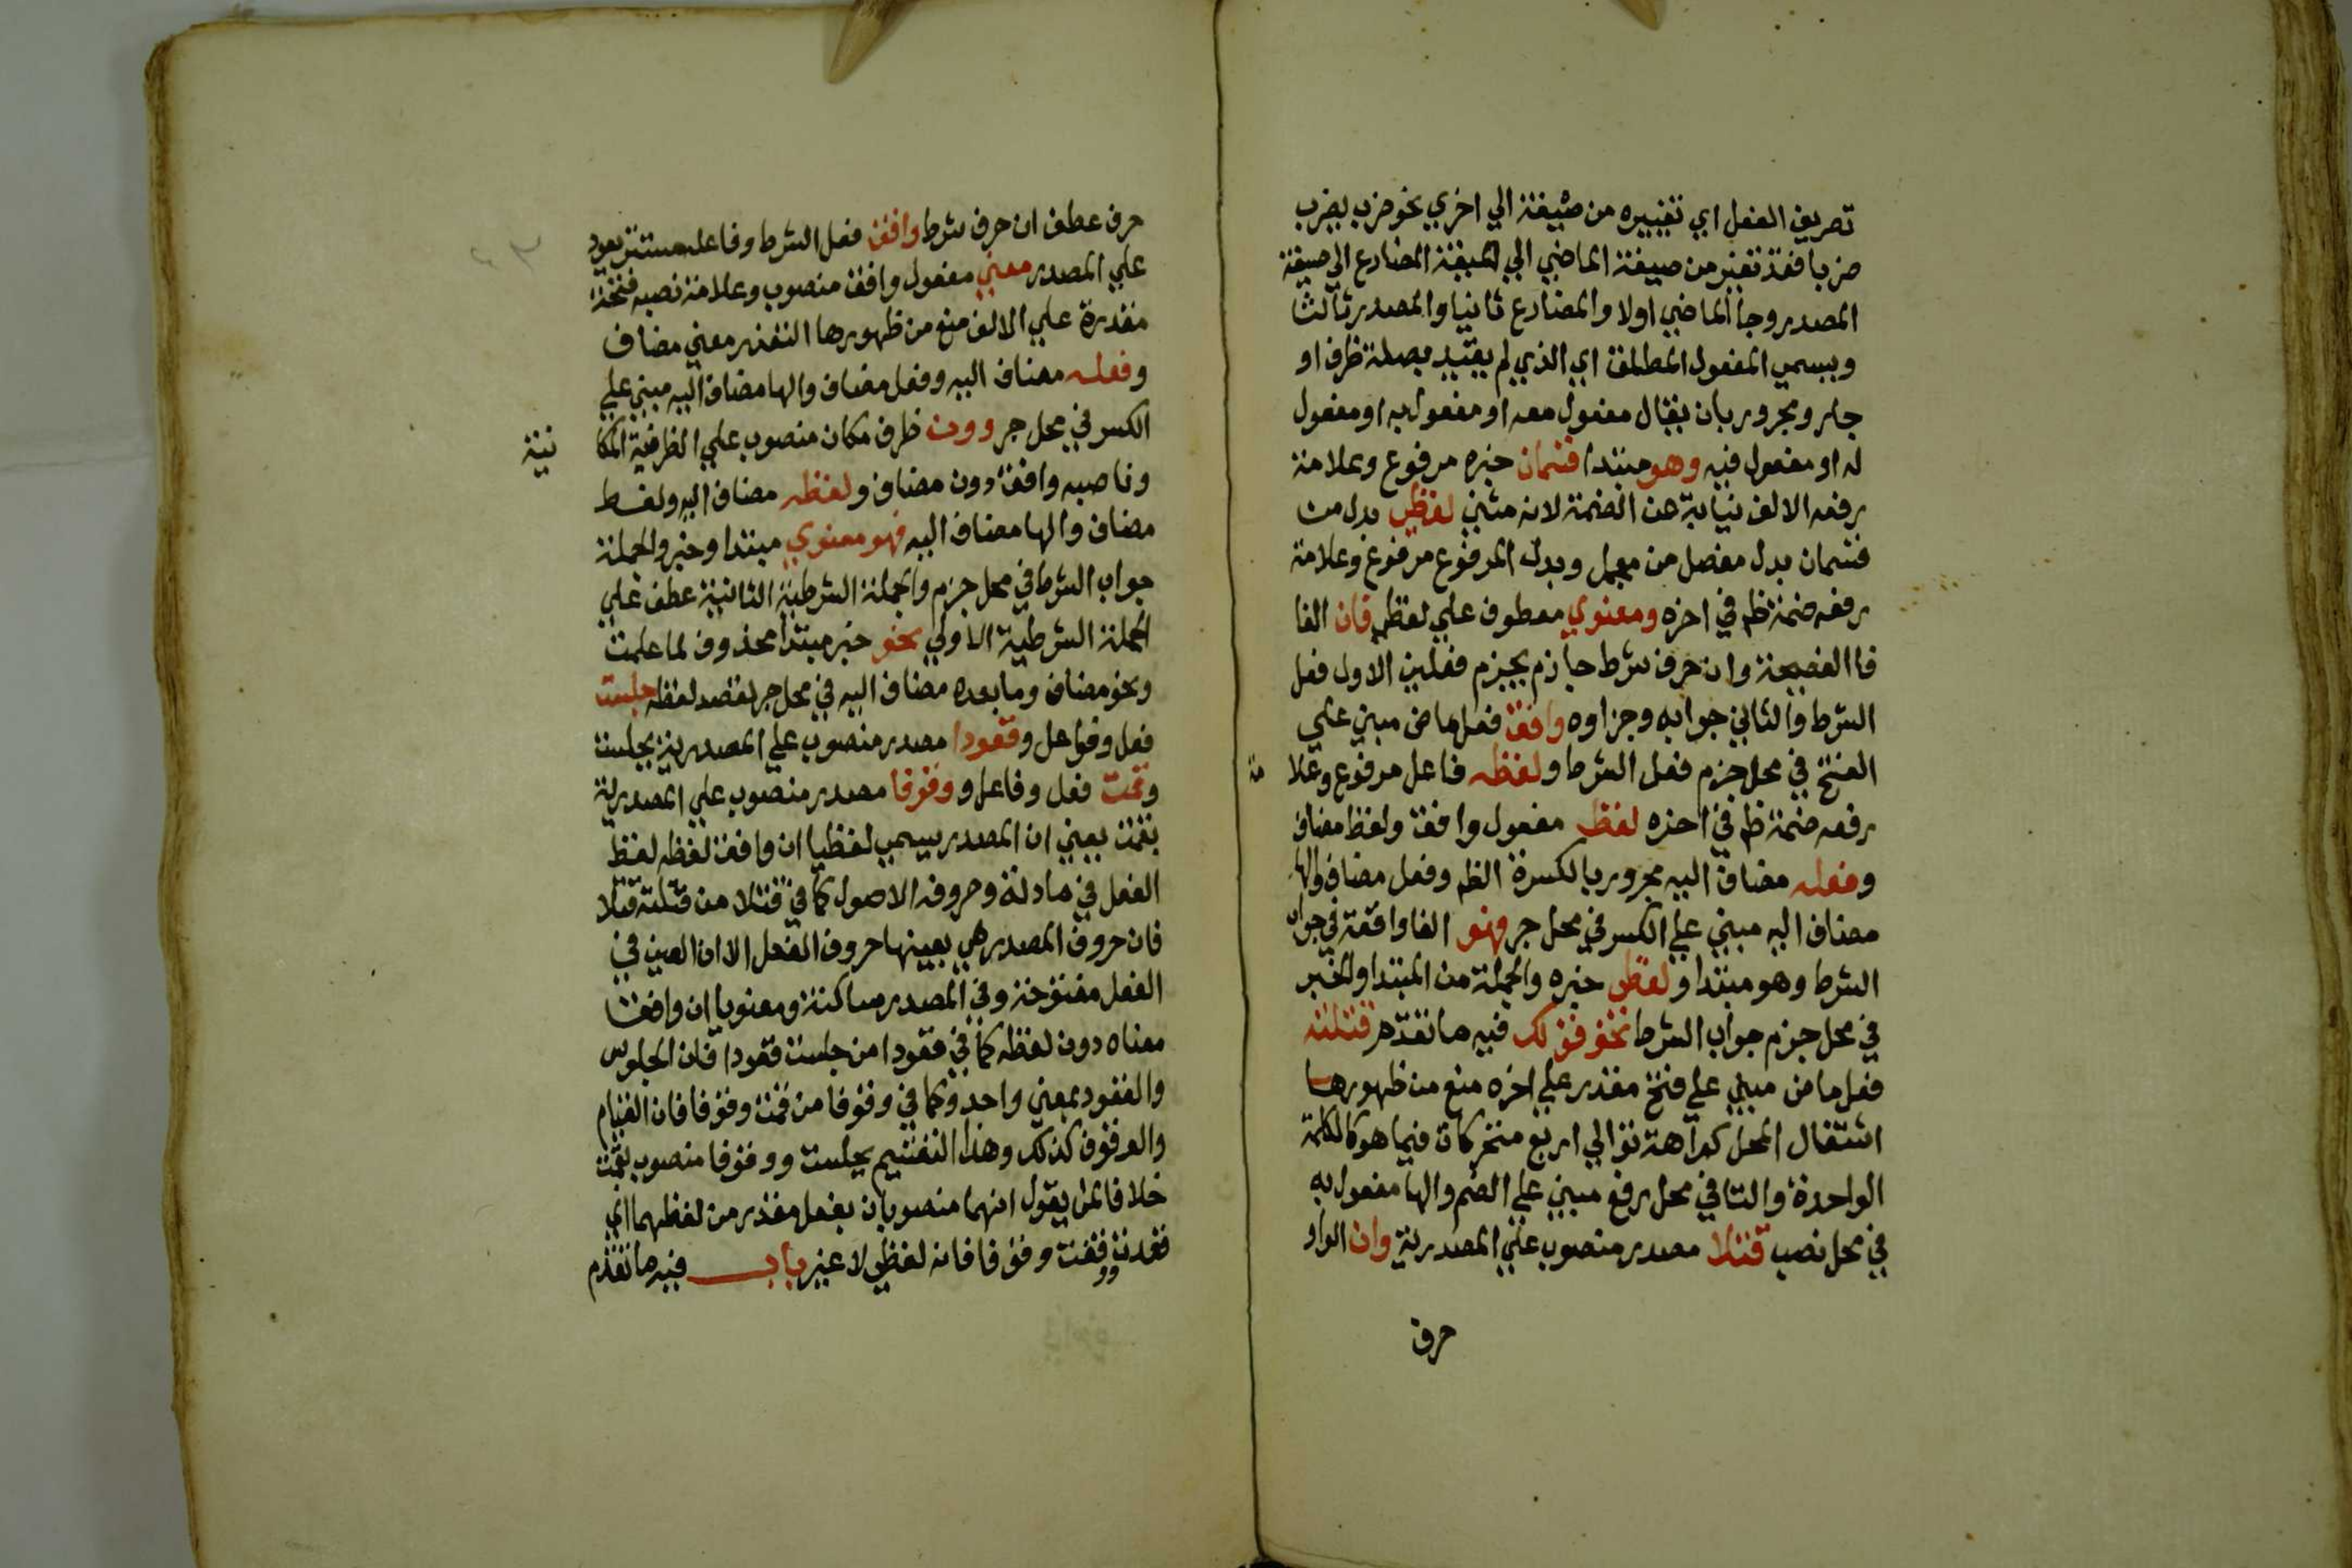 تصريف الفعل اي تغييره من صيغة الي اخري نحو ضرب يضرب
ضربا فقد تغير من صيغة الماضي الي صيغة المضارع الي صيغة
المصدر وجا الماضي اولا والمضارع ثانيا والمصدر ثالثا
ويسمي المفعول المطلق اي الذي لم يقيد بصلة ظرف او
جار ومجرور بان يقال مفعول معه او مفعول به او مفعول
له او مفعول فيه وهو مبتدا قسمان خبره مرفوع وعلامة
رفعه الالف نيابة عن الضمة لانه مثني لفظي بدل من
قسمان بدل مفصل من مجمل وبدل المرفوع مرفوع وعلامة
رفعه ضمة ظ في اخره ومعنوي معطوف علي لفظي فان الفا
فا الفصيحة وان حرف شرط جازم يجزم فعلين الاول فعل
الشرط والثاني جوابه وجزاوه وافق فعل ماض مبني علي
الفتح في محل جزم فعل الشرط ولفظه فاعل مرفوع وعلا مة
رفعه ضمة ظ في اخره لفظ مفعول وافق ولفظ مضاف
وفعله مضاف اليه مجرور بالكسرة الظ وفعل مضاف والها
مضاف اليه مبني علي الكسر في محل جر فهو الفا واقعة في جواب
الشرط وهو مبتدا ولفظي خبره والجملة من المبتدا والخبر
في محل جزم جواب الشرط نحو قولك فيه ما تقدم قتلته
فعل ماض مبني علي فتح مقدر علي اخره منع من ظهورها
اشتغال المحل كراهة توالي اربع متحركات فيما هو كالكلمة
الواحدة والتا في محل رفع مبني علي الضم والها مفعول به
في محل نصب قتلا مصدر منصوب علي المصدرية وان الواو
حرف
حرف عطف ان حرف شرط وافق فعل الشرط وفاعله مستتر يعود
علي المصدر معني مفعول وافق منصوب وعلامة نصبه فتحة
مقدرة علي الالف منع من ظهورها التعذر معني مضاف
وفعله مضاف اليه وفعل مضاف والها مضاف اليه مبني علي
الكسر في محل جر ودون ظرف مكان منصوب علي الظرفية المكا نية
وناصبه وافق دون مضاف ولفظه مضاف اليه ولفظ
مضاف والها مضاف اليه فهو معنوي مبتدا وخبر والجملة
جواب الشرط في محل جزم والجملة الشرطية الثانية عطف علي
الجملة الشرطية الاولي نحو خبر مبتدا محذوف لما علمت
ونحو مضاف وما بعده مضاف اليه في محل جر لقصد لفظه جلست
فعل وفاعل وقعودا مصدر منصوب علي المصدرية بجلست
وقمت فعل وفاعل ووقوفا مصدر منصوب علي المصدرية
بقمت يعني ان المصدر يسمي لفظيا ان وافق لفظه لفظ
الفعل في مادته وحروفه الاصول كما في قتلا من قتلته قتلا
فان حروف المصدر هي بعينها حروف الفعل الا ان العين في
الفعل مفتوحة وفي المصدر ساكنة ومعنويا ان وافق
معناه دون لفظه كما في قعودا من جلست قعودا فان الجلوس
والقعود بمعني واحد وكما في وقوفا من قمت وقوفا فان القيام
والوقوف كذلك وهذا التقسيم بجلست ووقوفا منصوب بقمت
خلافا لمن يقول انهما منصوبان بفعل مقدر من لفظهما اي
قعدت ووقفت وقوفا فانه لفظي لا غير باب فيه ما تقدم